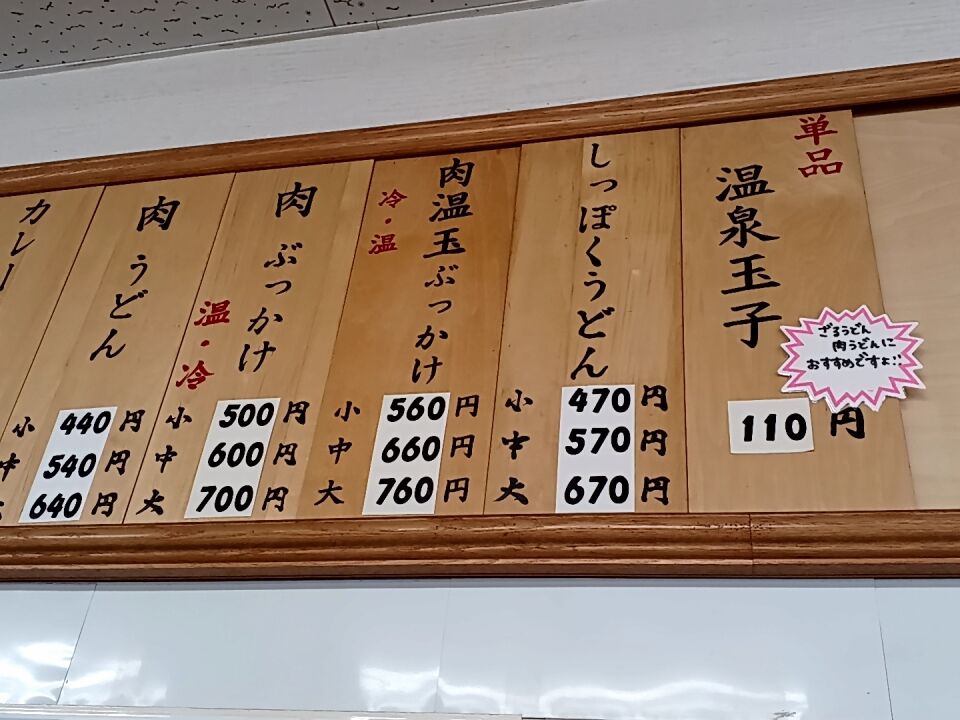 単品
温泉玉子
ざるうどん
肉うどんに
おすすめですよ!!
110円
しっぽくうどん
小 470円
中 570円
大 670円
肉温玉ぶっかけ
冷・温
小 560円
中 660円
大 760円
肉 ぶっかけ
温・冷
小 500円
中 600円
大 700円
肉 うどん
小 440円
中 540円
640円
カレー